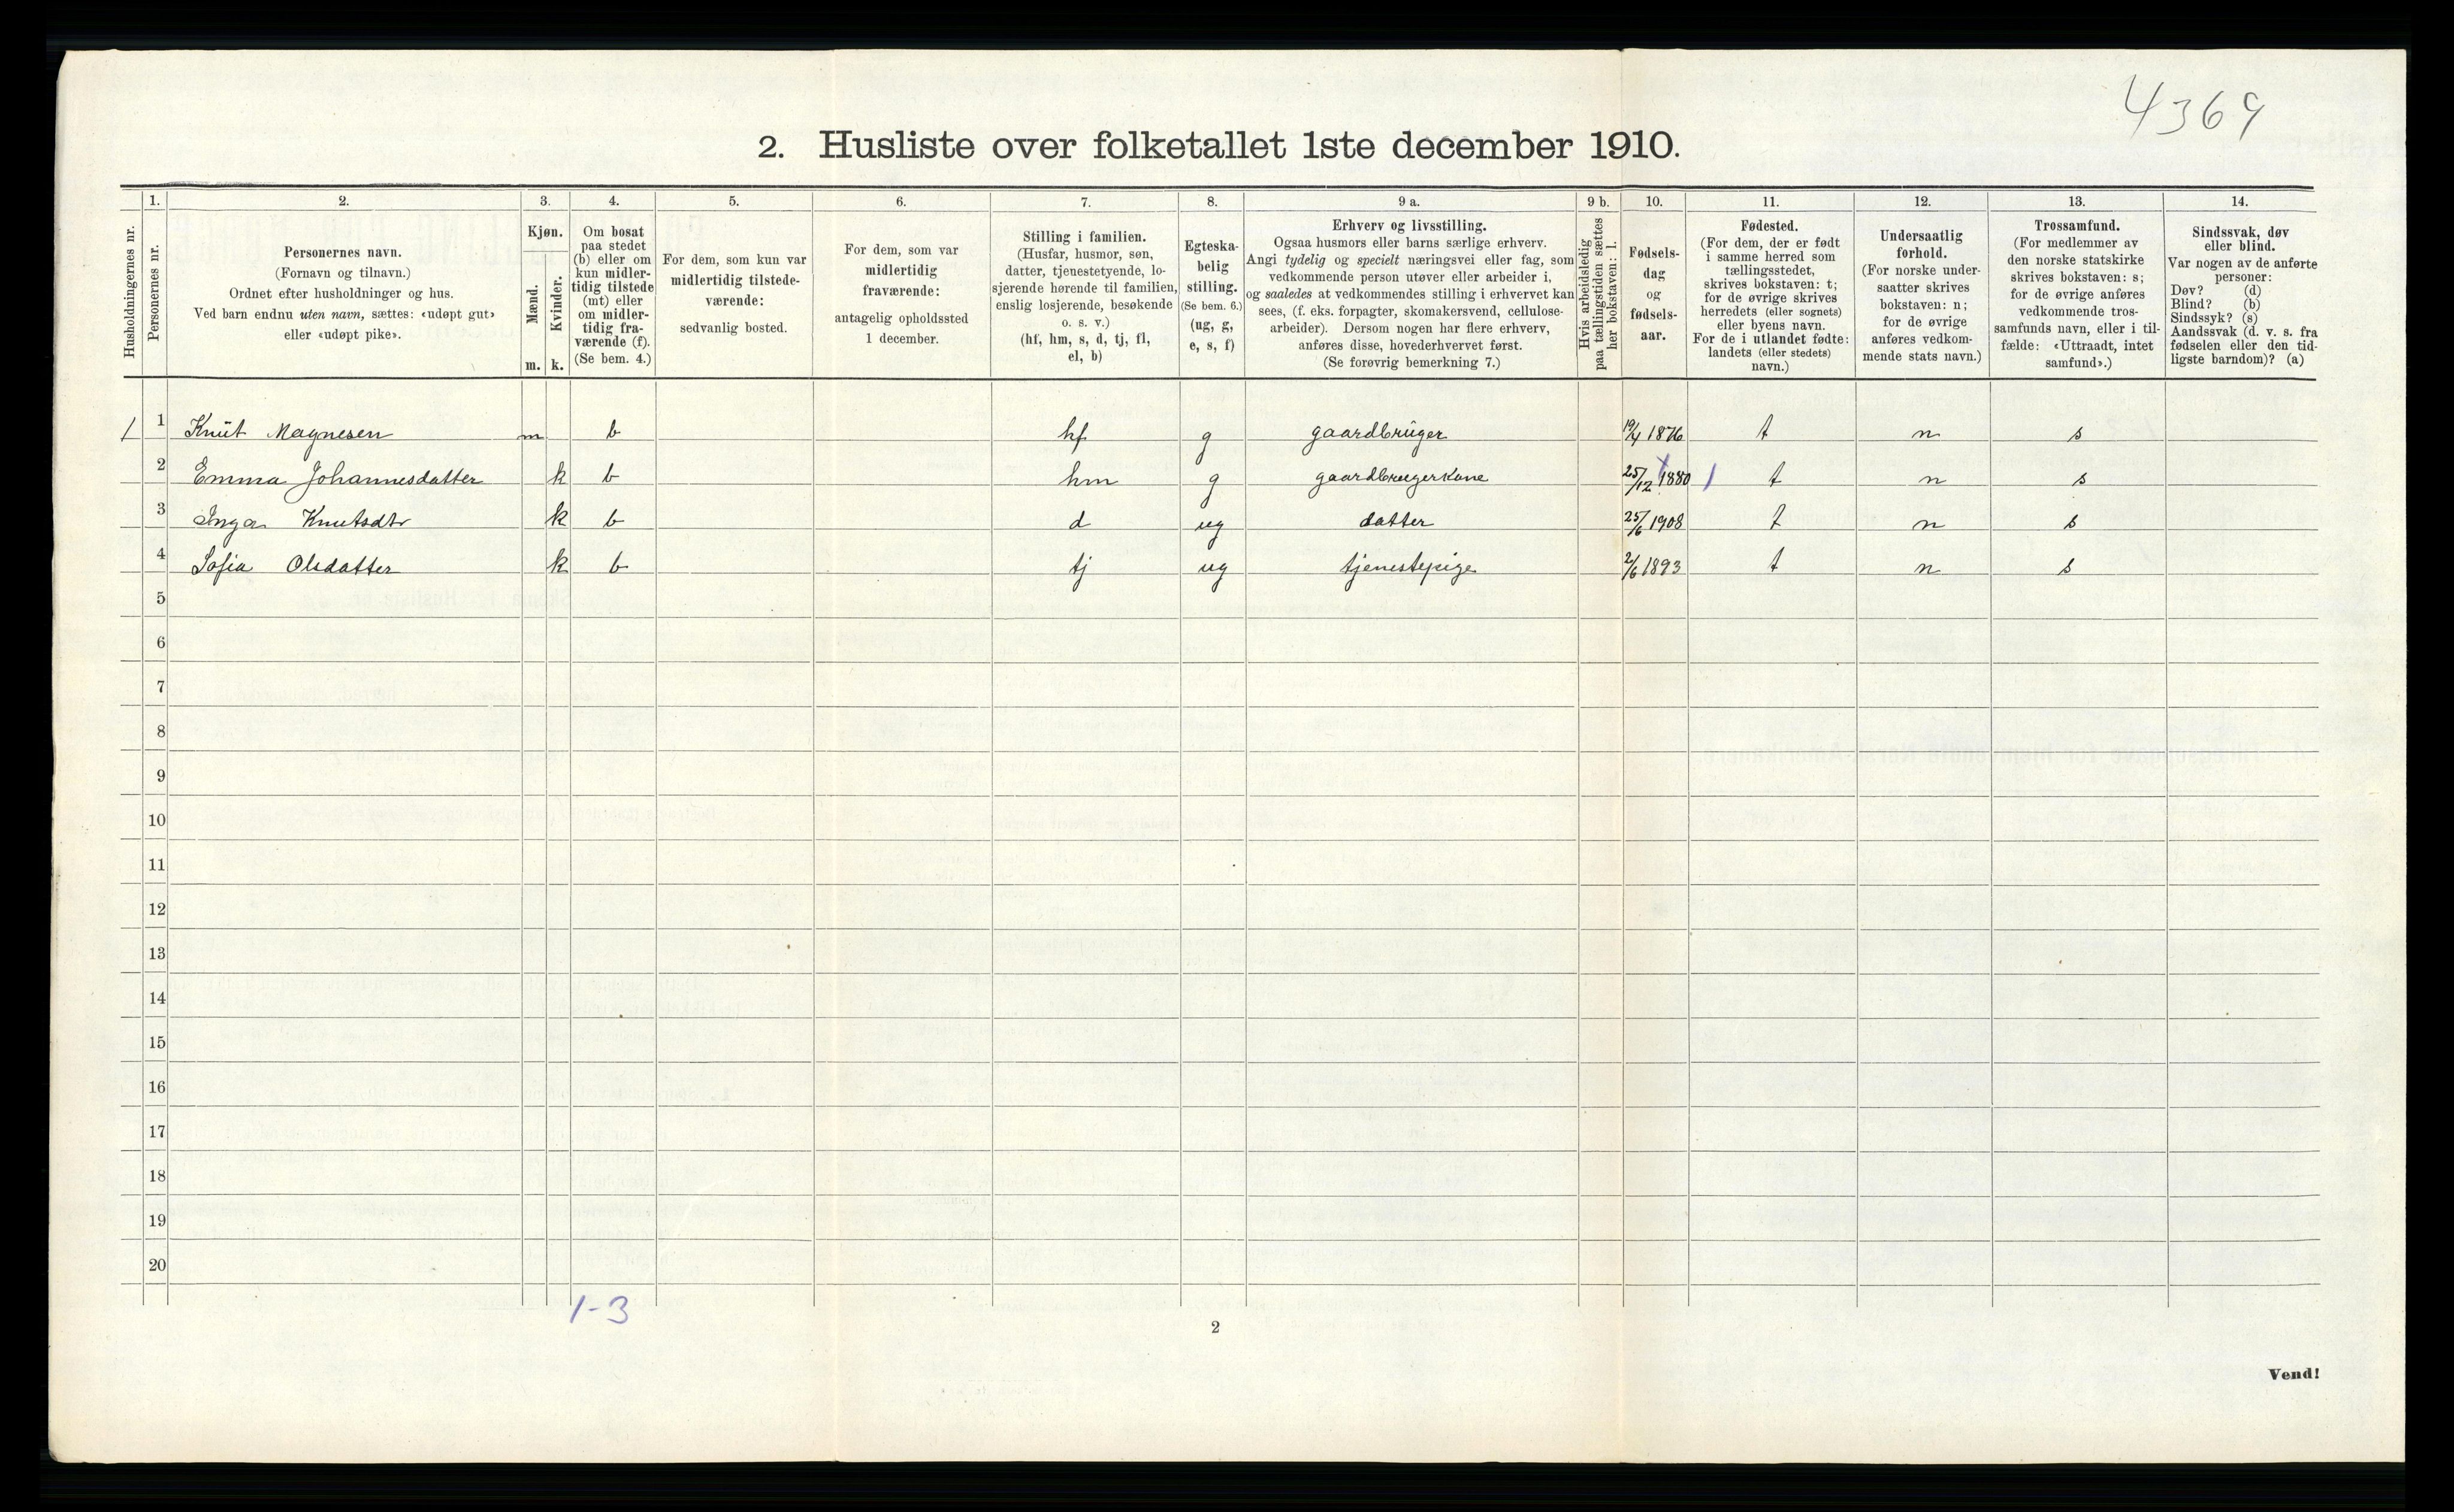 4369
2. Husliste over folketallet 1ste december 1910.
Husholdningernes nr.
1.
Personernes nr.
2.
Personernes navn.
(Fornavn og tilnavn.)
Ordnet efter husholdninger og hus.
Ved barn endnu uten navn, sættes: «udøpt gut»
eller «udøpt pike».
3.
Kjøn.
Mænd.
Kvinder.
m. k.
4.
Om bosat
paa stedet
(b) eller om
kun midler-
tidig tilstede
(mt) eller
om midler-
tidig fra-
værende (f).
(Se bem. 4.)
5.
For dem, som kun var
midlertidig tilstede-
værende:
sedvanlig bosted.
6.
For dem, som var
midlertidig
fraværende:
antagelig opholdssted
1 december.
7.
Stilling i familien.
(Husfar, husmor, søn,
datter, tjenestetyende, lo-
sjerende hørende til familien,
enslig losjerende, besøkende
o. s. v.)
(hf, hm, s, d, tj, fl,
el, b)
8.
Egteska-
belig
stilling.
(Se bem. 6.)
(ug, g,
e, s, f)
9 a.
Erhverv og livsstilling.
Ogsaa husmors eller barns særlige erhverv.
Angi tydelig og specielt næringsvei eller fag, som
vedkommende person utøver eller arbeider i,
og saaledes at vedkommendes stilling i erhvervet kan
sees, (f. eks. forpagter, skomakersvend, cellulose-
arbeider). Dersom nogen har flere erhverv,
anføres disse, hovederhvervet først.
(Se forøvrig bemerkning 7.)
9 b.
Hvis arbeidsledig
paa tællingstiden sættes
her bokstaven: l.
10.
Fødsels-
dag
og
fødsels-
aar.
11.
Fødested.
(For dem, der er født
i samme herred som
tællingsstedet,
skrives bokstaven: t;
for de øvrige skrives
herredets (eller sognets)
eller byens navn.
For de i utlandet fødte:
landets (eller stedets)
navn.)
12.
Undersaatlig
forhold.
(For norske under-
saatter skrives
bokstaven: n;
for de øvrige
anføres vedkom-
mende stats navn.)
13.
Trossamfund.
(For medlemmer av
den norske statskirke
skrives bokstaven: s;
for de øvrige anføres
vedkommende tros-
samfunds navn, eller i til-
fælde: «Uttraadt, intet
samfund».)
14.
Sindssvak, døv
eller blind.
Var nogen av de anførte
personer:
Døv? (d)
Blind? (b)
Sindssyk? (s)
Aandssvak (d. v. s. fra
fødselen eller den tid-
ligste barndom)? (a)
1 1 Knut Magnesen m b hf g gaardbruger 19/4 1876 t n s
2 Emma Johannesdatter k b hm g gaardbrugerkone 25/12 1880 t n s
3 Inga Knutsdtr k b d ug datter 25/6 1908 t n s
4 Sofia Olsdatter k b tj ug tjenestepige 2/6 1893 t n s
5
6
7
8
9
10
11
12
13
14
15
16
17
18
19
20
1-3
2
Vend!